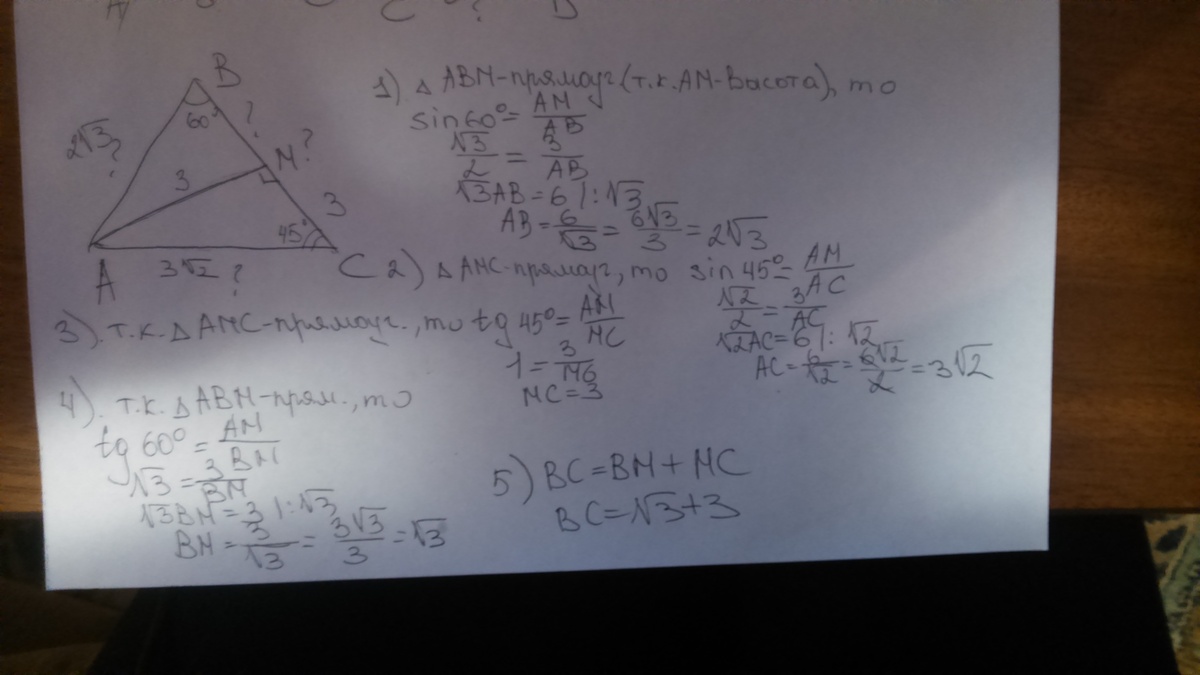 B
60°
?
2√3
?
M?
3
3
45°
A
3√2
?
C
1) △ ABM-прямоуг(т.к.AM-высота), то
sin60°= AM/AB
√3/2 = 3/AB
√3AB = 6 |:√3
AB = 6/√3 = 6√3/3 = 2√3
2) △ AMC-прямоуг, то sin 45°= AM/AC
√2/2 = 3/AC
√2AC=6 |: √2
AC= 6/√2 = 6√2/2 = 3√2
3). т.к.△ AMC-прямоуг., то tg 45°= AM/MC
1 = 3/MC
MC=3
4). т.к. △ ABM-прям., то
tg 60° = AM/BM
√3 = 3/BM
√3BM = 3 |:√3
BM = 3/√3 = 3√3/3 = √3
5) BC=BM+MC
BC=√3+3